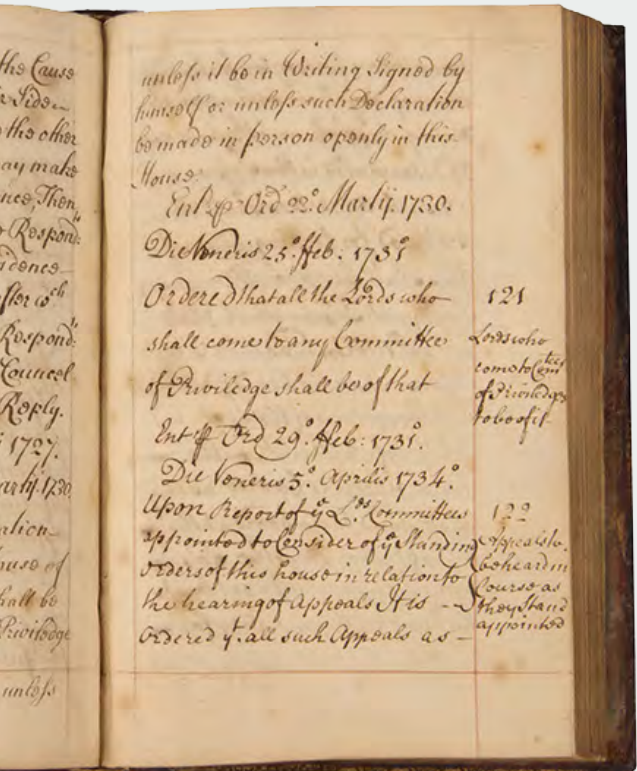 the Cause
Side
the other
ay make
nce, Then
Respond:
idence
after wch
Respond:
Councel
Reply.
1727.
1730.
ation
ouse of
hall be
Priviledge
unless
unless it be in Writing Signed by
himself or unless such Declaration
be made in person openly in this
House.
Ent p Ord 22o. Martij. 1730.
Die Veneris 25o. ffeb: 1731o
Ordered that all the Lords who
shall come to any Committee
of Priviledge shall be of that
Ent p Ord 29o. ffeb: 1731o.
Die Veneris 5o. Aprilis 1734o.
Upon Report of ye Lds. Committees
appointed to Consider of ye Standing
orders of this house in relation to
the hearing of Appeals It is
Ordered yt. all such Appeals as
121
Lords who
come to Comtees
of Priviledges
to be of it
122
Appeals to
be heard in
Course as
they Stand
appointed